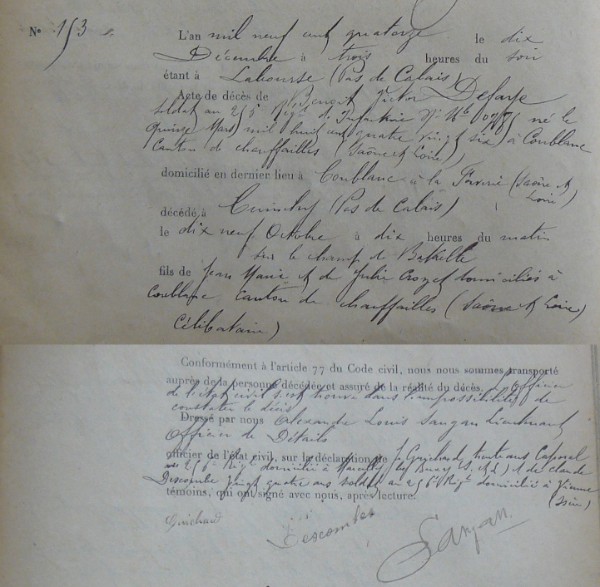 N° 153
L'an mil neuf cent quatorze le dix
Décembre à trois heures du soir
étant à Labourse (Pas de Calais)
Acte de décès de Benoît Victor Defarge
soldat au 256e Regt d'Infanterie né le
quinze Mars mil huit cent quatre vingt six à Coublanc
Canton de chauffailles (Saône et Loire)
domicilié en dernier lieu à Coublanc à la (Saône et
Loire)
décédé à Cuinchy (Pas de Calais)
le dix neuf Octobre à dix heures du matin
sur le champ de Bataille
fils de Jean Marie et de Julie domiciliés à
Coublanc Canton de chauffailles (Saône et Loire)
Célibataire)
Conformément à l'article 77 du Code civil, nous nous sommes transporté
auprès de la personne décédée et assuré de la réalité du décès. L'Officier
de l'état civil s'est trouvé dans l'impossibilité de
constater le décès
Dressé par nous Alexandre Louis Lieutenant
Officier de Détails
officier de l'état civil, sur la déclaration de trente ans Caporal
au 256e Regt domicilié à (S. et L) et de Claude
Descombes vingt quatre ans soldat au 256e Regt domicilié à
témoins, qui ont signé avec nous, après lecture.
Descombes